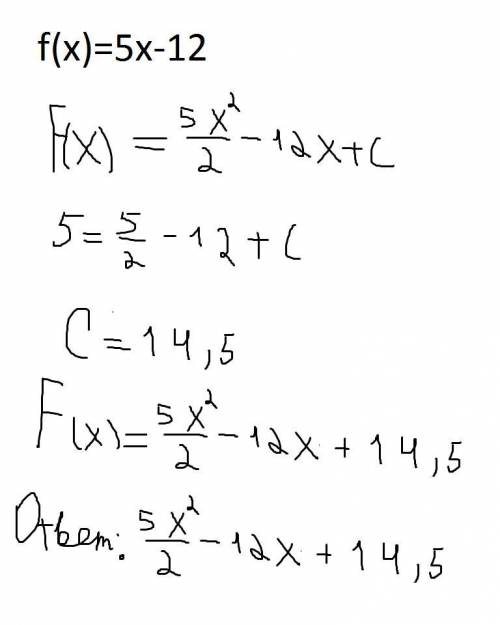 f(x)=5x-12
F(x) = 5x²/2 - 12x + C
5 = 5/2 - 12 + C
C = 14,5
F(x) = 5x²/2 - 12x + 14,5
Ответ: 5x²/2 - 12x + 14,5